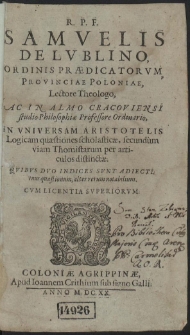 R. P. F.
SAMVELIS
DE LVBLINO,
ORDINIS PRÆDICATORVM
PROVINCIAE POLONIAE,
Lectore Theologo,
AC IN ALMO CRACOVIENSI
studio Philosophiæ Professore Ordinario,
IN VNIVERSAM ARISTOTELIS
Logicam quæstiones scholasticæ, secundum
viam Thomistarum per arti-
culos distinctæ.
QVIBVS DVO INDICES SVNT ADIECTI,
vnus quæstionum, alter rerum notabilium.
CVM LICENTIA SVPERIORVM.
COLONIÆ AGRIPPINÆ,
Apud Ioannem Crithium sub signo Galli.
ANNO M.DC.XX.
14926